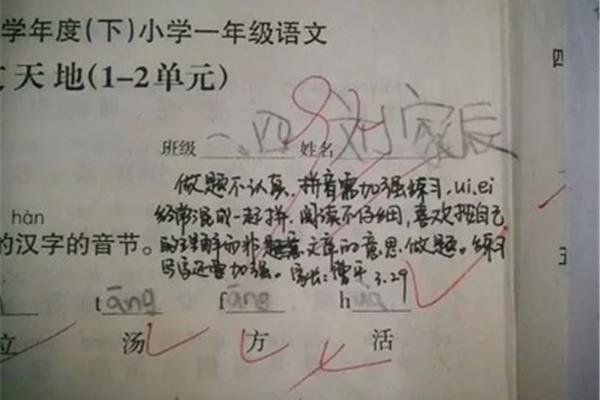 学年度(下)小学一年级语文
天地(1-2单元)
班级 一.四 姓名 刘家辰
做题不认真、拼音需加强练习、ui.ei
经常混成一起拼、阅读不仔细,喜欢按自己
的理解而非 文章的意思做题。练习
写字还需加强。家长: 3.29
hàn
的汉字的音节。
tāng fāng h
立 汤 方 活
四
五